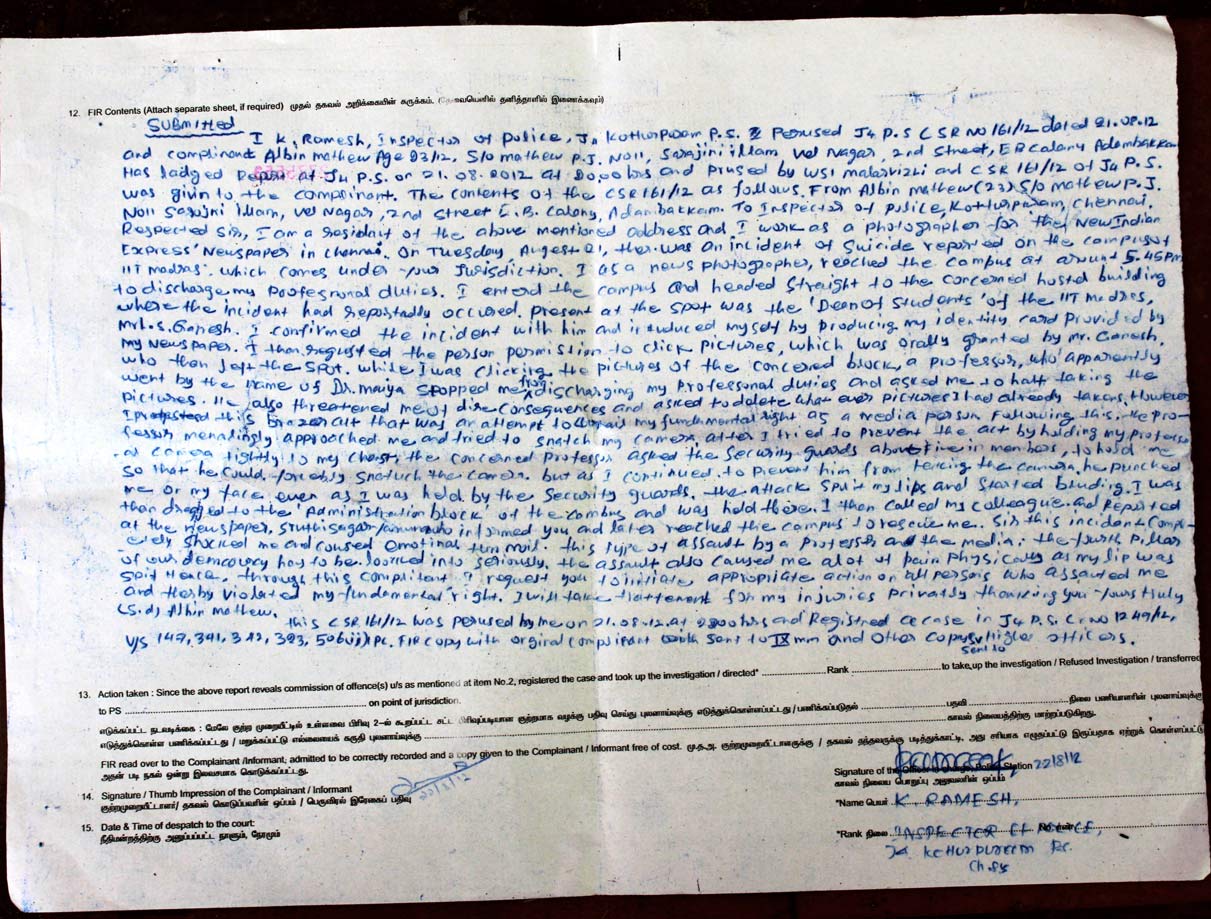 12. FIR Contents (Attach separate sheet, if required) முதல் தகவல் அறிக்கையின் சுருக்கம். (தேவையெனில் தனித்தாளில் இணைக்கவும்)
Submitted
I K. Ramesh, Inspector of police, J4 Kotturpuram P.S. Perused J4 P.S CSR NO 161/12 dated 21.08.12
and complinant Albin mathew Age 23/12. S/o mathew P.J. No 11, Sarajini illam, vel Nagar, 2nd Street, EB Calany Adambakkam
Has ladged Report at J4 P.S. on 21.08.2012 at hrs and prused by WSI malarvizhi and CSR 161/12 of J4 P.S.
was givin to the complinant. The contents of the CSR 161/12 as follows. From Albin mathew (23) S/o mathew P.J.
No 11 Sarojni illam, vel Nagar, 2nd Street E.B. Calony, Adambakkam. To Inspector of police, Kotturpuram, Chennai.
Respected Sir, I am a residant of the above mentioned address and I work as a photographer for the 'New Indian
Express' Newspaper in chennai. On Tuesday, Augest 21, ther was an incident of Suicide reported on the campus of
'IIT madras' which comes under your Jurisdiction. I as a news photographer, reached the campus at around 5.45PM
to discharge my Professional duties. I enterd the campus and headed straight to the concerned hostel building
where the incident had reportadly occured. Present at the spot was the 'Dean of Students' of the IIT madras,
Mr L.S. Ganesh. I confirmed the incident with him and my self by producing my identity card provided by
my Newspaper. I then requsted the person permission to click pictures, which was orally granted by mr. Ganesh.
who then left the spot. while I was clicking the pictures of the concered block, a professor, who apparently
went by the name of Dr. maiya stopped me from discharging my Professional duties and asked me to halt taking the
pictures. He also threatened me of dire consequences and asked to delete what ever pictures I had already taken. However
I protested this brazen act that was an attempt to my fundamental right as a media person Following this, the pro-
fessor menacingly approached me and tried to snatch my camera, after I tried to prevent the act by holding my Professi-
al camera tightly to my chest, the concerned Professor asked the Security guards above five in members, to hold me
so that he could forcebly snatch the camera. but as I continued to prevent him from the camera, he punched
me on my face even as I was held by the Security guards. the attack split my lips and started bleeding. I was
than dragged to the 'Administration block' of the cambus and was hold there. I then called my colleague and Reported
at the Newspaper, Sruthisagar who informed you and later reached the campus to rescue me. Sir this incident compl-
etely shocked me and coused emotinal turmoil. this type of assault by a Professor and the media, the fourth Pillar
of our democracy has to be looked into seriously. the assault also caused me alot of pain physicaly as my lip was
split Hence, through this complinat I request you to initiate appropriate action on all persons who assauted me
and therby violated my fundamental right. I will take treattement for my injuries privatly thanking you yours truly
(S.d) Albin mathew.
this CSR 161/12 was perused by me on 21.08.12 at hrs and Registred a case in J4 P.S. Cr no 1249/12,
U/S 147, 341, 342, 323, 506(ii) IPC. FIR copy with orginal complinant sent to IX mm and other copys sent to higher officers.
13. Action taken : Since the above report reveals commission of offence(s) u/s as mentioned at item No.2, registered the case and took up the investigation / directed* .................... Rank .................... to take up the investigation / Refused Investigation / transferred
to PS .................... on point of jurisdiction.
எடுக்கப்பட்ட நடவடிக்கை : மேலே குற்ற முறையீட்டில் உள்ளவை பிரிவு 2-ல் கூறப்பட்ட சட்ட பிரிவுப்படியான குற்றமாக வழக்கு பதிவு செய்து புலனாய்வுக்கு எடுத்துக்கொள்ளப்பட்டது / பணிக்கப்படுதல் .................... பதவி .................... நிலை பணியாளரின் புலனாய்வுக்கு
எடுத்துக்கொள்ள பணிக்கப்பட்டது / மறுக்கப்பட்டு எல்லையைக் கருதி புலனாய்வுக்கு .................... காவல் நிலையத்திற்கு மாற்றப்படுகிறது.
FIR read over to the Complainant /Informant, admitted to be correctly recorded and a copy given to the Complainant / Informant free of cost. மு.த.அ. குற்றமுறையீட்டாளருக்கு / தகவல் தந்தவருக்கு படித்துக்காட்டி, அது சரியாக எழுதப்பட்டு இருப்பதாக ஏற்றுக் கொள்ளப்பட்டு
அதன் படி நகல் ஒன்று இலவசமாக கொடுக்கப்பட்டது.
Signature of the Officer in charge, Police Station 22/8/12
காவல் நிலைய பொறுப்பு அலுவலரின் ஒப்பம்
14. Signature / Thumb Impression of the Complainant / Informant
குற்றமுறையீட்டாளர்/ தகவல் கொடுப்பவரின் ஒப்பம் / பெருவிரல் இரேகைப் பதிவு
*Name பெயர் K. RAMESH,
15. Date & Time of despatch to the court:
நீதிமன்றத்திற்கு அனுப்பப்பட்ட நாளும், நேரமும்
*Rank நிலை INSPECTER OF POLICE,
J4 KOTTURPURAM PS.